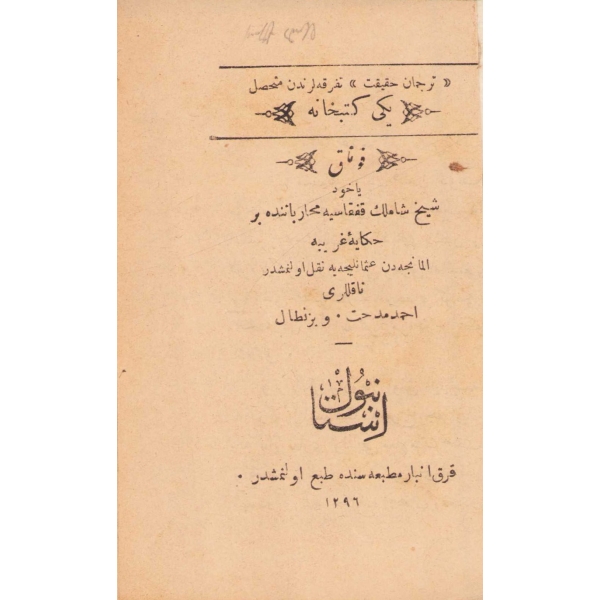 « ترجمان حقیقت » تفرقه‌لرندن متحصل
یکی کتبخانه
قوناق
یاخود
شیخ شاملك قفقاسیه محارباتنده بر
حکایهٔ غریبه
المانجه‌دن عثمانلیجه‌یه نقل اولنمشدر
ناقللری
احمد مدحت . و بزنطال
استانبول
قرق انبار مطبعه سنده طبع اولنمشدر .
١٢٩٦